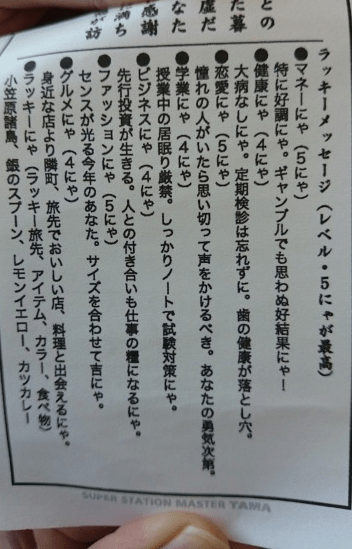 との
た暮
虚だ
なた
感謝
満ち
が訪
ラッキーメッセージ（レベル・5にゃが最高）
●マネーにゃ（5にゃ）
特に好調にゃ。ギャンブルでも思わぬ好結果にゃ！
●健康にゃ（4にゃ）
大病なしにゃ。定期検診は忘れずに。歯の健康が落とし穴。
●恋愛にゃ（5にゃ）
憧れの人がいたら思い切って声をかけるべき。あなたの勇気次第。
●学業にゃ（4にゃ）
授業中の居眠り厳禁。しっかりノートで試験対策にゃ。
●ビジネスにゃ（4にゃ）
先行投資が生きる。人との付き合いも仕事の糧になるにゃ。
●ファッションにゃ（5にゃ）
センスが光る今年のあなた。サイズを合わせて吉にゃ。
●グルメにゃ（4にゃ）
身近な店より隣町、旅先でおいしい店、料理と出会えるにゃ。
●ラッキーにゃ（ラッキー旅先、アイテム、カラー、食べ物）
小笠原諸島、銀のスプーン、レモンイエロー、カツカレー
SUPER STATION MASTER TAMA